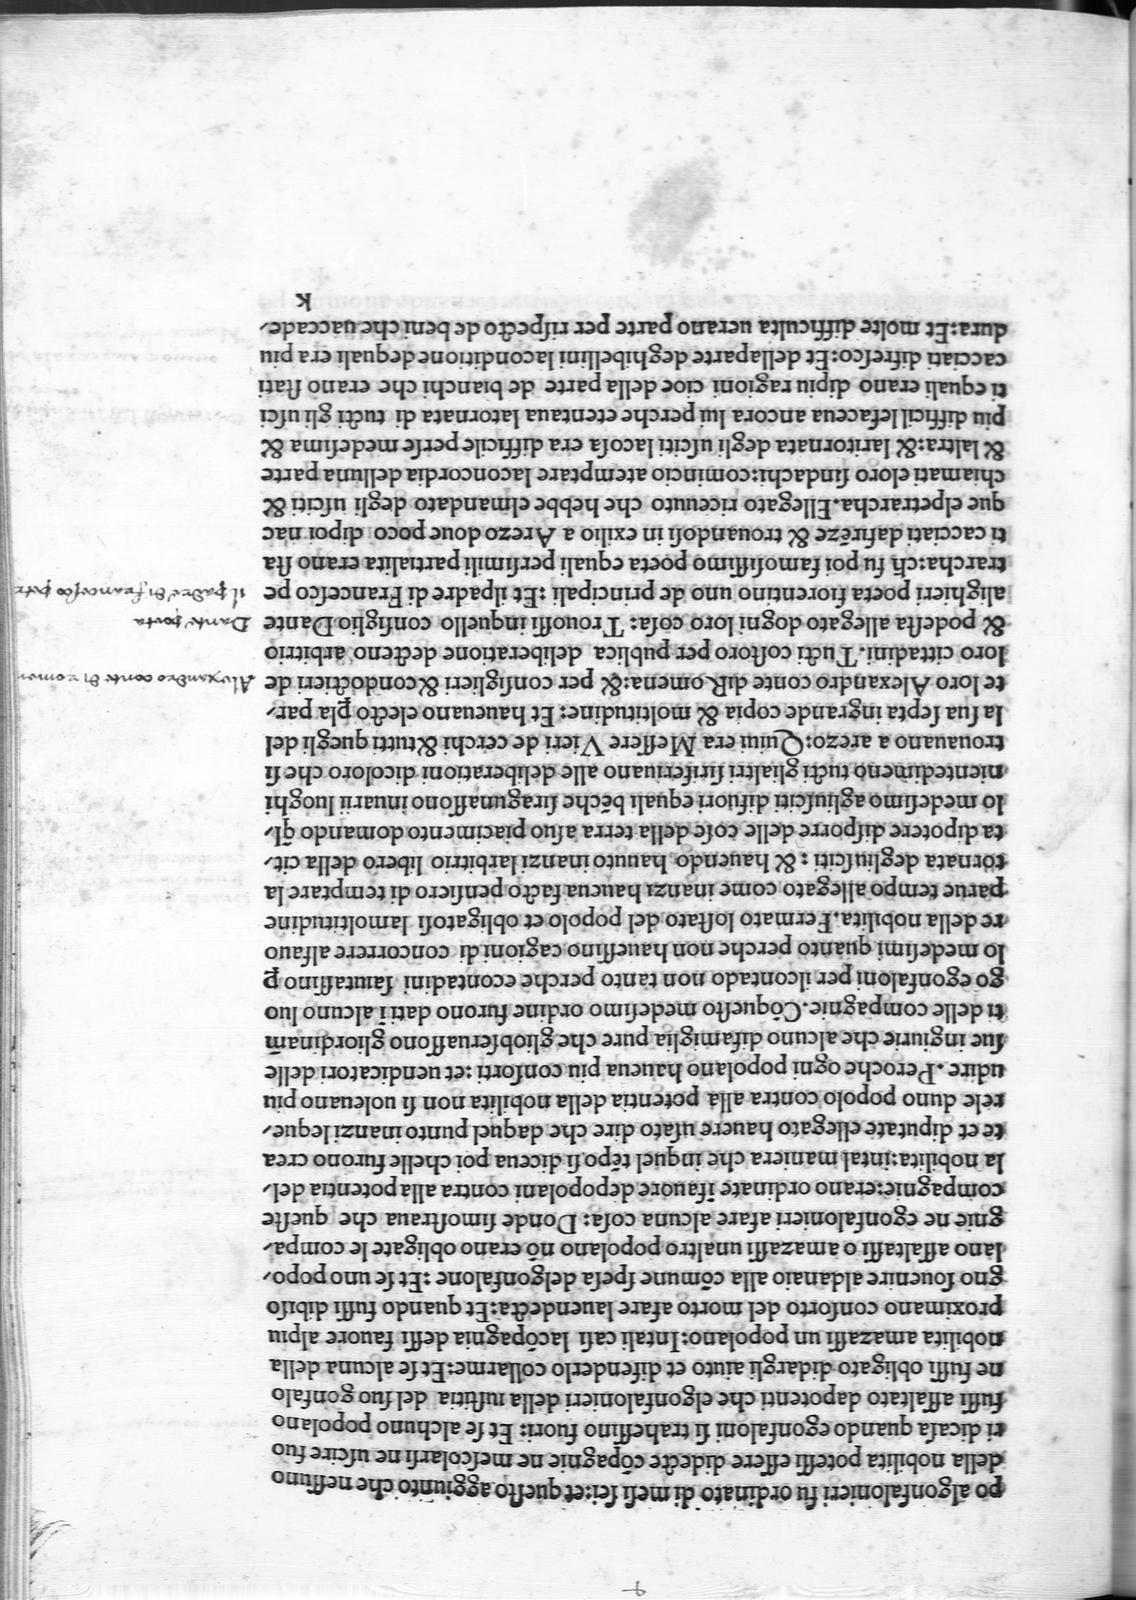 po algonfalonieri fu ordinato di mesi sei:et questo aggiunto che nessuno
della nobilita potessi essere didecte cōpagnie ne mescolarsi ne uscire fuo
ri dicasa quando egonfaloni si trahessino fuori: Et se alchuno popolano
fussi assaltato dapotenti che elgonfalonieri della iustitia del suo gonfalo
ne fussi obligato didargli aiuto et difenderlo collarme:Et se alcuna della
nobilita amazassi un popolano:Intali casi lacōpagnia dessi fauore alpiu
proximano conforto del morto afare lauendecta:Et quando fussi dibiso
gno souenire aldanaio alla cōmune spesa delgonfalone :Et se uno popo-
lano assaltassi o amazassi unaltro popolano nō erano obligate le compa-
gnie ne egonfalonieri afare alcuna cosa: Donde simostraua che queste
compagnie:erano ordinate ifauore depopolani contra alla potentia del-
la nobilita:intal maniera che inquel tēpo si diceua poi chelle furono crea
te et diputate ellegato hauere usato dire che daquel punto inanzi leque-
rele duno popolo contra alla potentia della nobilita non si uoleuano piu
udire .Peroche ogni popolano haueua piu conforti :et uendicatori delle
sue ingiurie che alcuno difamiglia pure che gliobseruassono gliordinam̄
ti delle compagnie.Cōquesto medesimo ordine furono dati ī alcuno luo
go egonfaloni per ilcontado non tanto perche econtadini saiutassino ꝑ
lo medesimi quanto perche non hauessino cagioni di concorrere alfauo
re della nobilita.Fermato lostato del popolo et obligatosi lamoltitudine
parue tempo allegato come inanzi haueua facto pensiero di temptare la
tornata degliusciti : & hauendo hauuto inanzi larbitrio libero della cit-
ta dipotere disporre delle cose della terra asuo piacimento domando q̄l-
lo medesimo agliusciti difuori equali bēche siragunassono inuarii luoghi
nientedimeno tucti glialtri siriferiuano alle deliberationi dicoloro che si
trouauano a arezo:Quiui era Messere Vieri de cerchi &tutti quegli del
la sua septa ingrande copia & moltitudine: Et haueuano electo ꝑla par-
te loro Alexandro conte diRomena:& per consiglieri &condoctieri de
loro cittadini.Tucti costoro per publica deliberatione decteno arbitrio
& podesta allegato dogni loro cosa: Trouossi inquello consiglio Dante
alighieri poeta fiorentino uno de principali :Et ilpadre di Francesco pe
trarcha:ch fu poi famosissimo poeta equali persimili partialita erano sta
ti cacciati dafirēze & trouandosi in exilio a Arezo doue poco dipoi nac
que elpetrarcha.Ellegato riceuuto che hebbe elmandato degli usciti &
chiamati eloro sindachi:comincio atemptare laconcordia delluna parte
& laltra:& laritornata degli usciti lacosa era difficile perse medesima &
piu difficil lefaceua ancora lui perche etentaua latornata di tucti gli usci
ti equali erano dipiu ragioni cioe della parte de bianchi che erano stati
cacciati difresco:Et dellaparte deghibellini laconditione dequali era piu
dura:Et molte difficulta uerano parte per rispecto de beni che uaccade-
k
Alexandro conte di romen
Dante poeta
il padre di francesco petr